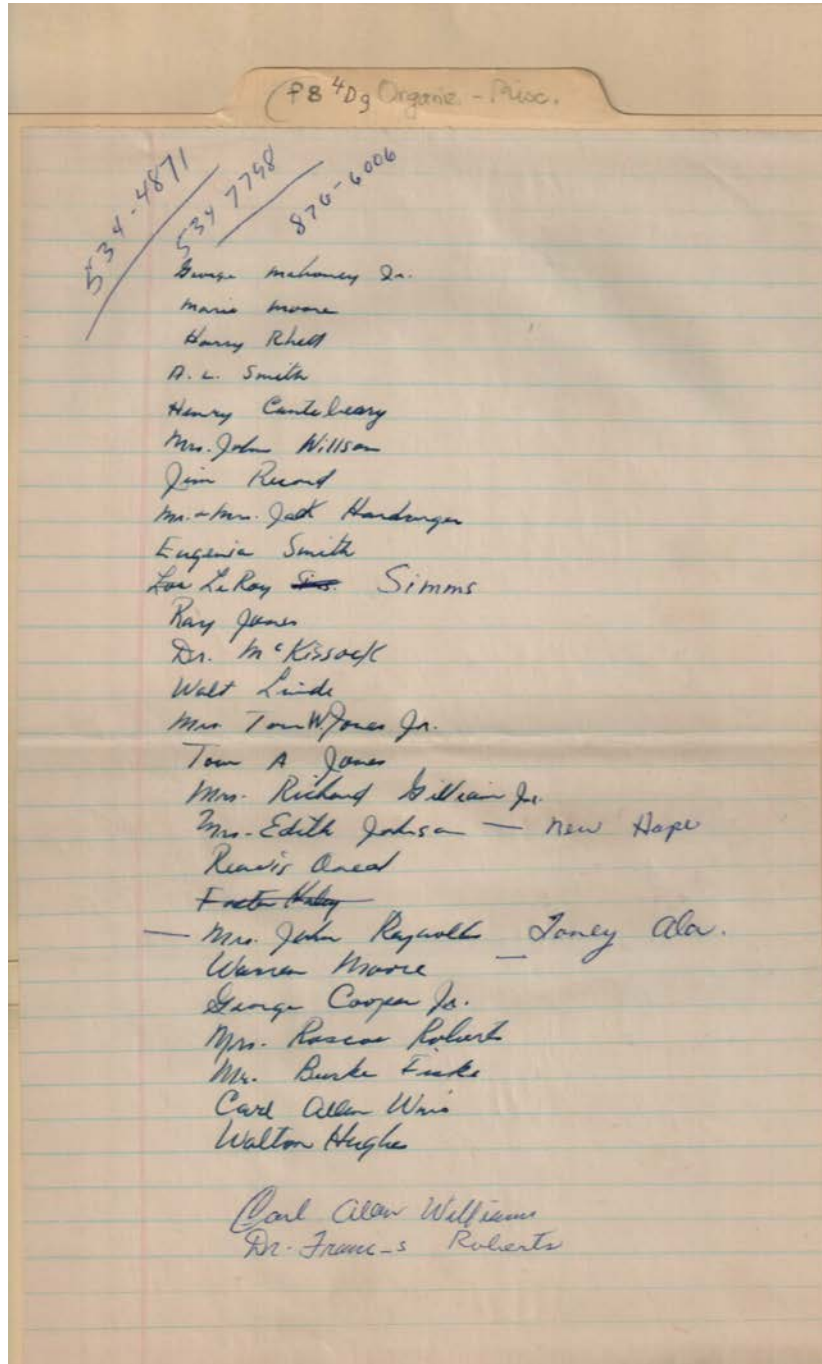 f8 4Dg Organie - Misc.
534-4871
534 7798
876-6006
George Mahoney Jr.
Marie Moore
Harry Rhett
A. L. Smith
Henry
Mrs. John Willson
Jim Record
Mr. + Mrs. Jack
Eugenia Smith
LeRoy Simms
Ray Jones
Dr. McKissack
Walt Linde
Mrs Tom W Jones Jr.
Tom A Jones
Mrs. Richard Gilliam Jr.
Mrs. Edith Johnson — New Hope
Reavis
Foster Haley
— Mrs. John Toney Ala.
Warren Moore —
George Cooper Jr.
Mrs. Roscoe Roberts
Mr. Burke Fiske
Carl Allen
Walton Hughes
Carl Alan Williams
Dr. Franc-s Roberts